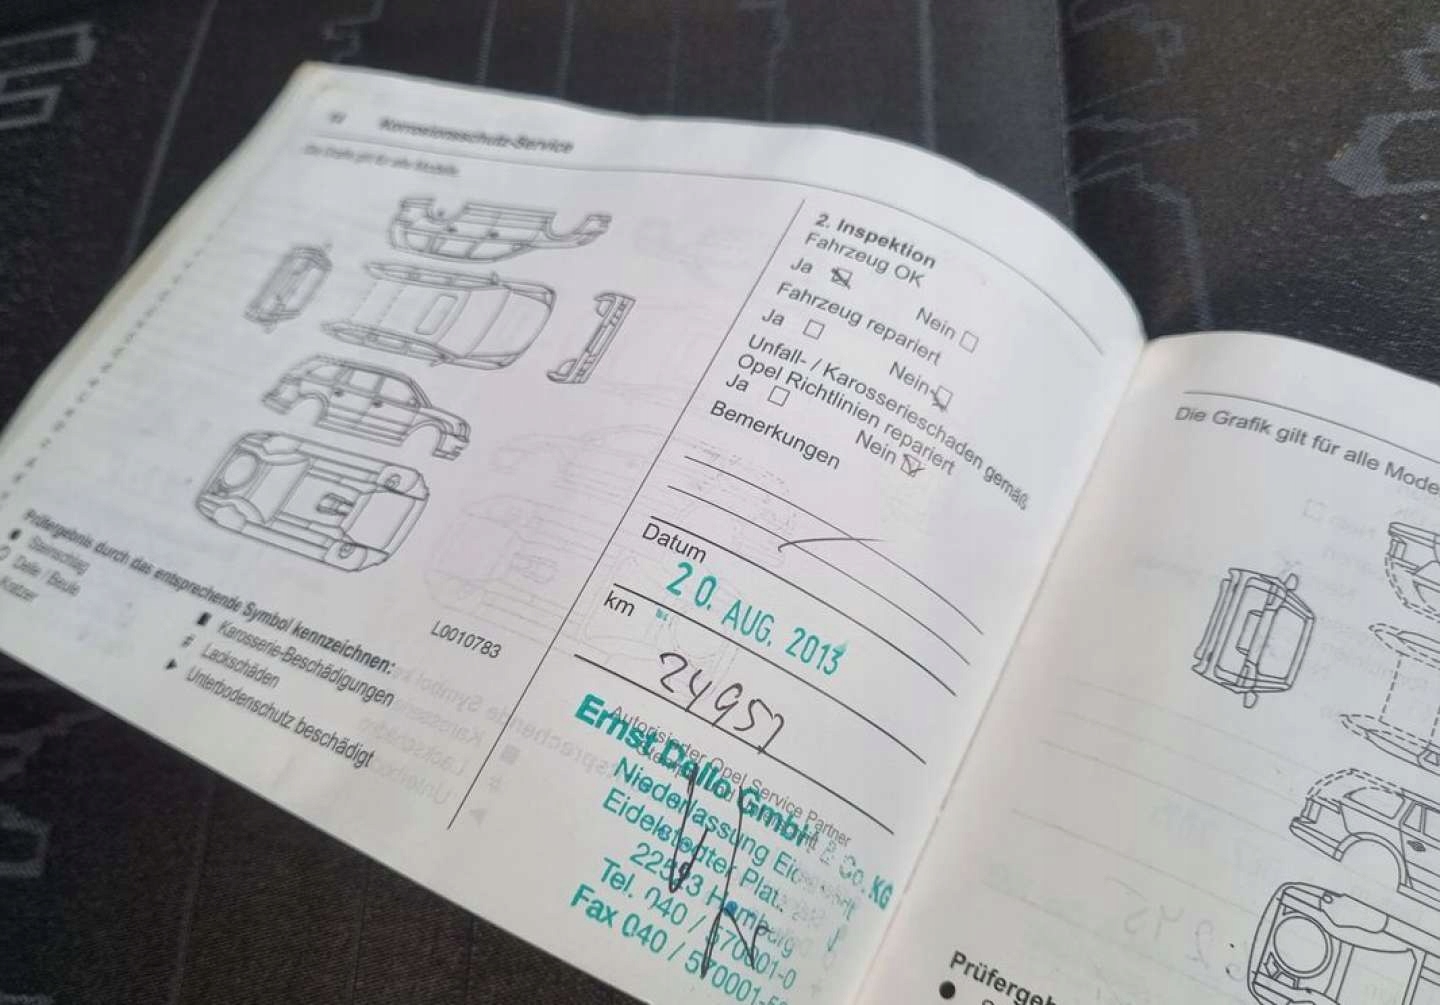 Korrosionsschutz-Service
Die Grafik gilt für alle Modelle
Prüfergebnis durch das entsprechende Symbol kennzeichnen:
Steinschlag
Delle / Beule
Kratzer
Karosserie-Beschädigungen
# Lackschäden
Unterbodenschutz beschädigt
L0010783
2. Inspektion
Fahrzeug OK
Ja Nein
Fahrzeug repariert
Ja Nein
Unfall- / Karosserieschaden gemäß
Opel Richtlinien repariert
Ja Nein
Bemerkungen
Datum
20. AUG. 2013
km
24957
Autorisierter Opel Service Partner
Ernst Dello GmbH & Co. KG
Niederlassung
Eidelstedter Platz
Hamburg
Tel. 040 / 570001-0
Fax 040 / 570001-
Die Grafik gilt für alle